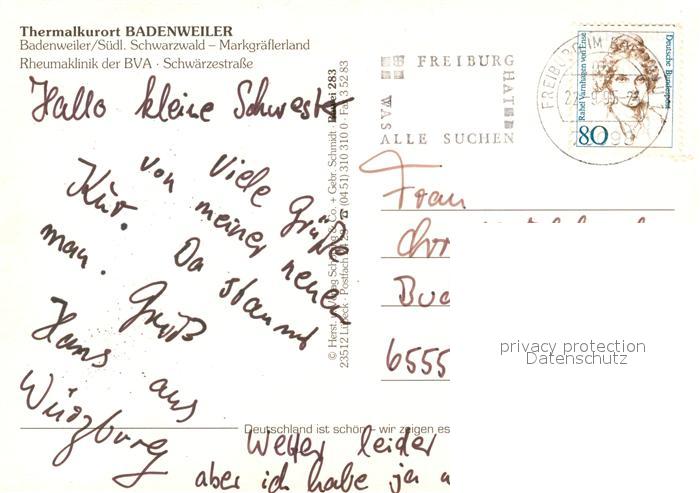 Thermalkurort BADENWEILER
Badenweiler/Südl. Schwarzwald – Markgräflerland
Rheumaklinik der BVA · Schwärzestraße
Hallo kleine Schwester
Viele Grüße
von meiner neuen
Kur. Da staunst
man.
Gruß
Hans aus
Würzburg
Wetter leider
aber ich habe ja
Deutschland ist schön – wir zeigen es
© Herst. u. Verlag Schöning & Co. + Gebr. Schmidt ·
23512 Lübeck · Postfach
☎ (04 51) 310 310 0 · Fax 3 52 83
FREIBURG
HAT
WAS
ALLE SUCHEN
FREIBURG IM BREISGAU
Rahel Varnhagen von Ense
Deutsche Bundespost
80
Frau
Chr
Buc
6555
privacy protection
Datenschutz